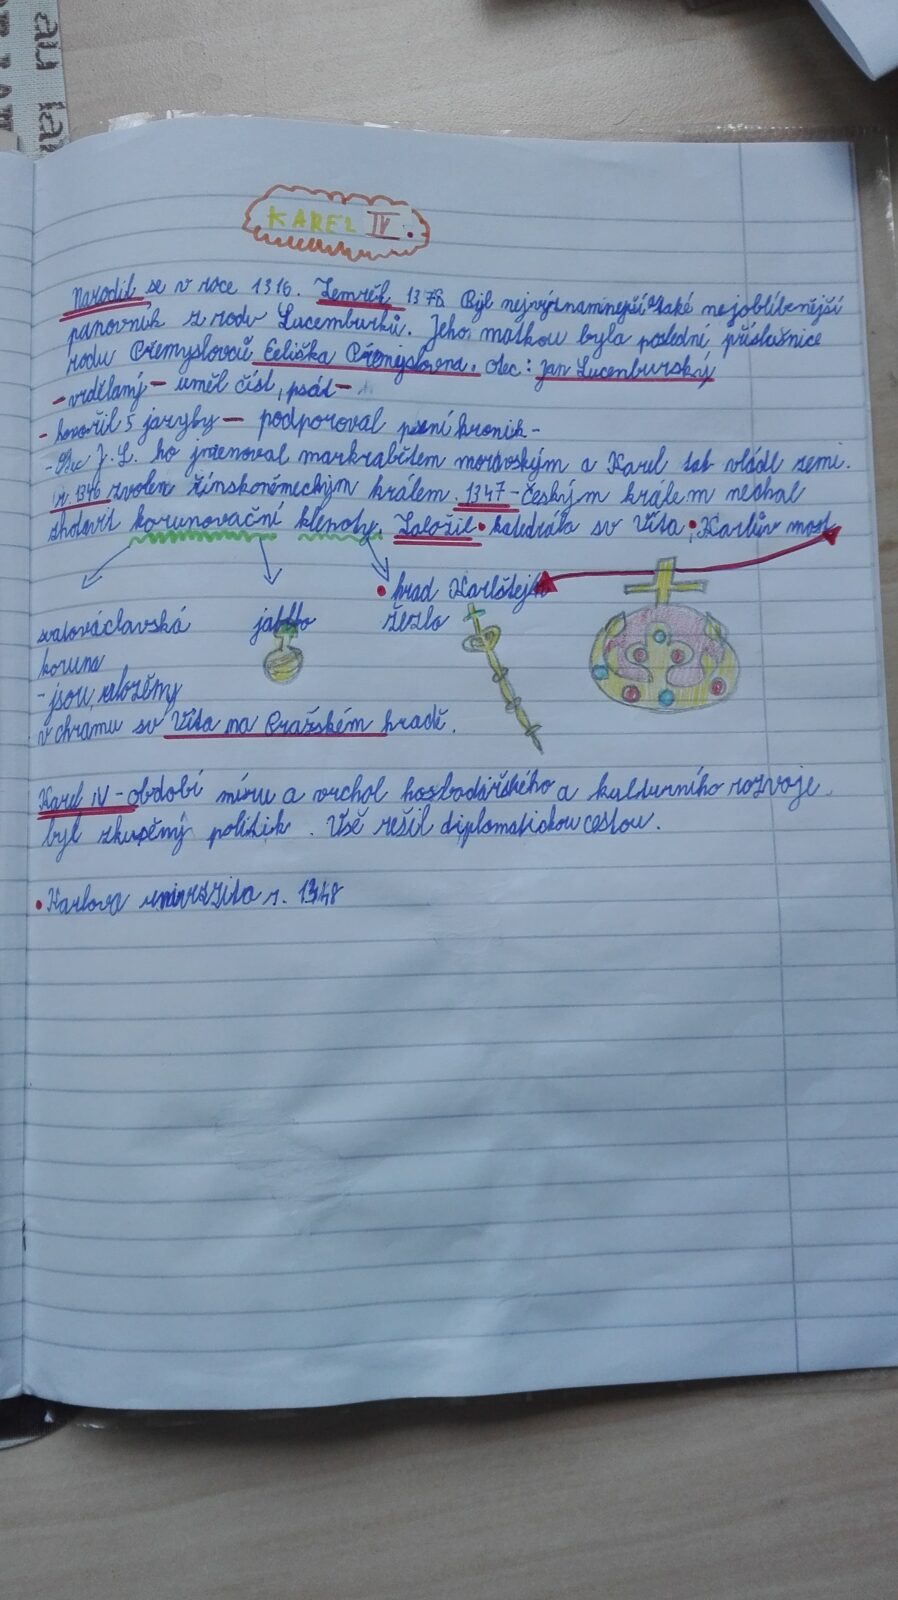 KAREL IV.
Narodil se v roce 1316. Zemřěl 1378 Byl nejvýznamnější také nejoblíbenější
panovník z rodu Lucemburků. Jeho matkou byla poslední příslušnice
rodu Přemyslovců Eeliška Přemyslovna. Otec: Jan Lucemburský
- vzdělaný - uměl číst, psát -
- hovořil 5 jazyky - podporoval psaní kronik -
- Otec J. L. ho jmenoval markrabětem moravským a Karel tak vládl zemi.
r 1346 zvolen římskoněmeckým králem. 1347 - českým králem nechal
zhotovit korunovační klenoty. Založil • katedrála sv Víta • Karlův most
• hrad Karlštejn
svatováclavská jablko žezlo
koruna
- jsou uloženy
v chramu sv Víta na Pražském hradě.
Karel IV - období míru a vrchol hospodářského a kulturního rozvoje.
byl zkušěný politik. Vše řešil diplomatickou cestou.
• Karlova r. 1348